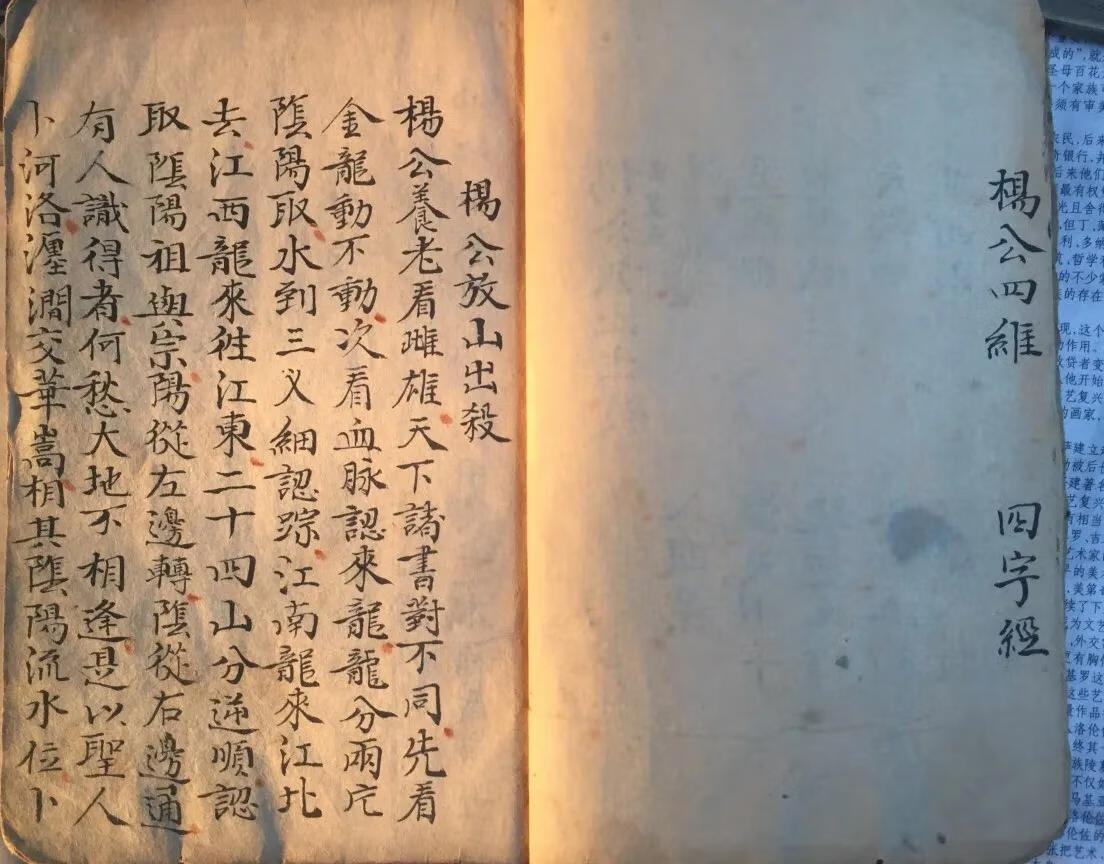 楊公四維 四字經
楊公放山出殺
楊公養老看雌雄天下諸書對不同先看
金龍動不動次看血脉認來龍龍分兩片
陰陽取水到三义細認踪江南龍來江北
去江西龍來往江東二十四山分逆順認
取陰陽祖與宗陽從左邊轉陰從右邊通
有人識得者何愁大地不相逢是以聖人
卜河洛瀍澗交華嵩相其陰陽流水位卜